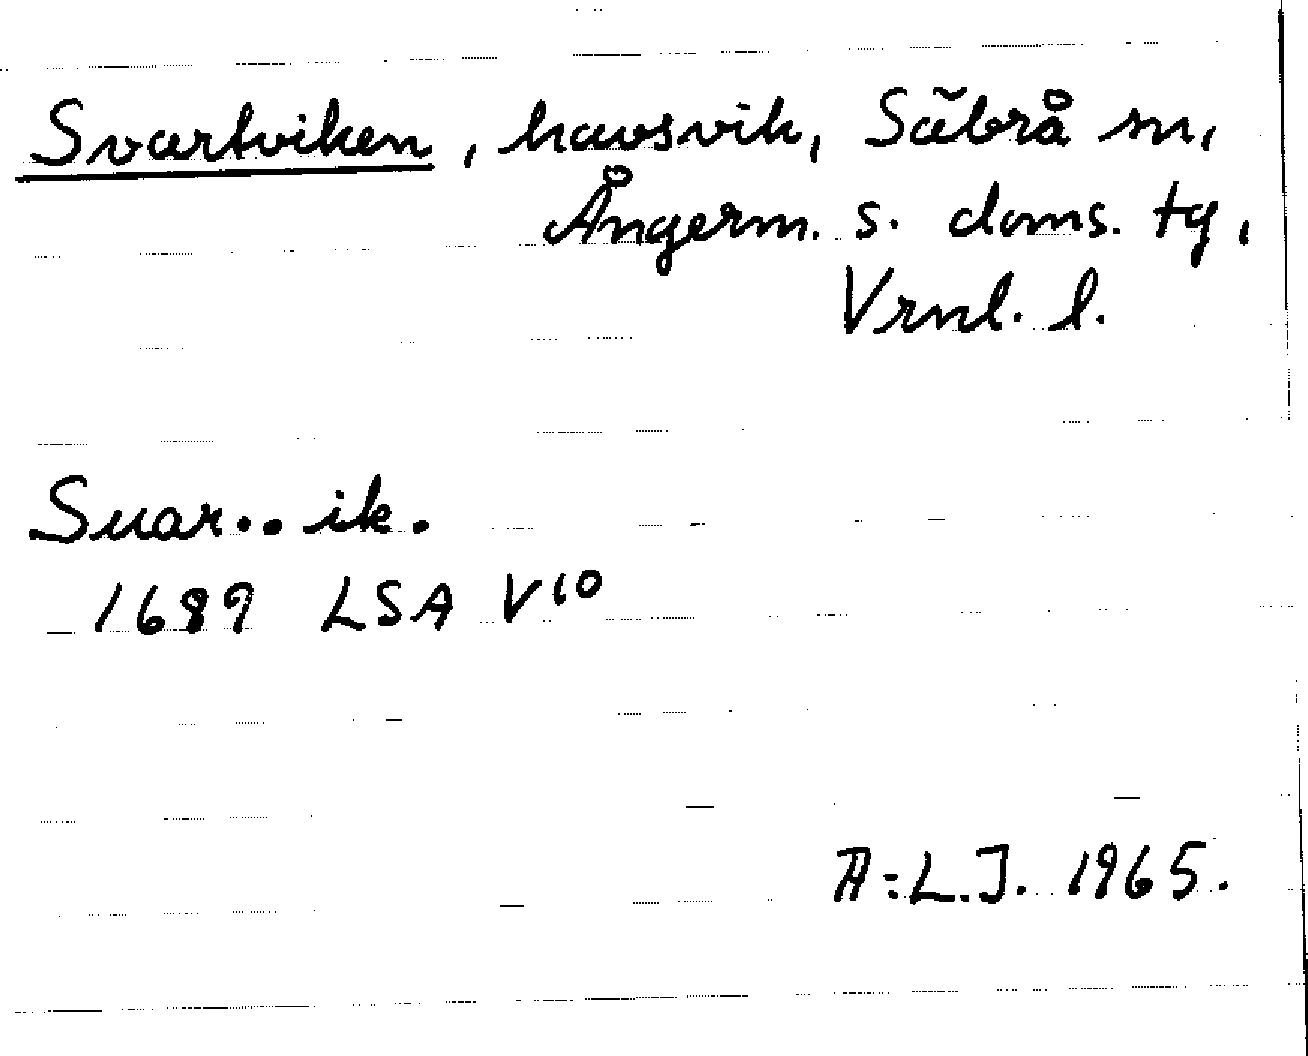 Svartviken, havsvik, Säbrå sn,
Ångerm. s. doms. tg,
Vrnl. l.
Suar..ik.
1689 LSA V10
A:L.J. 1965.